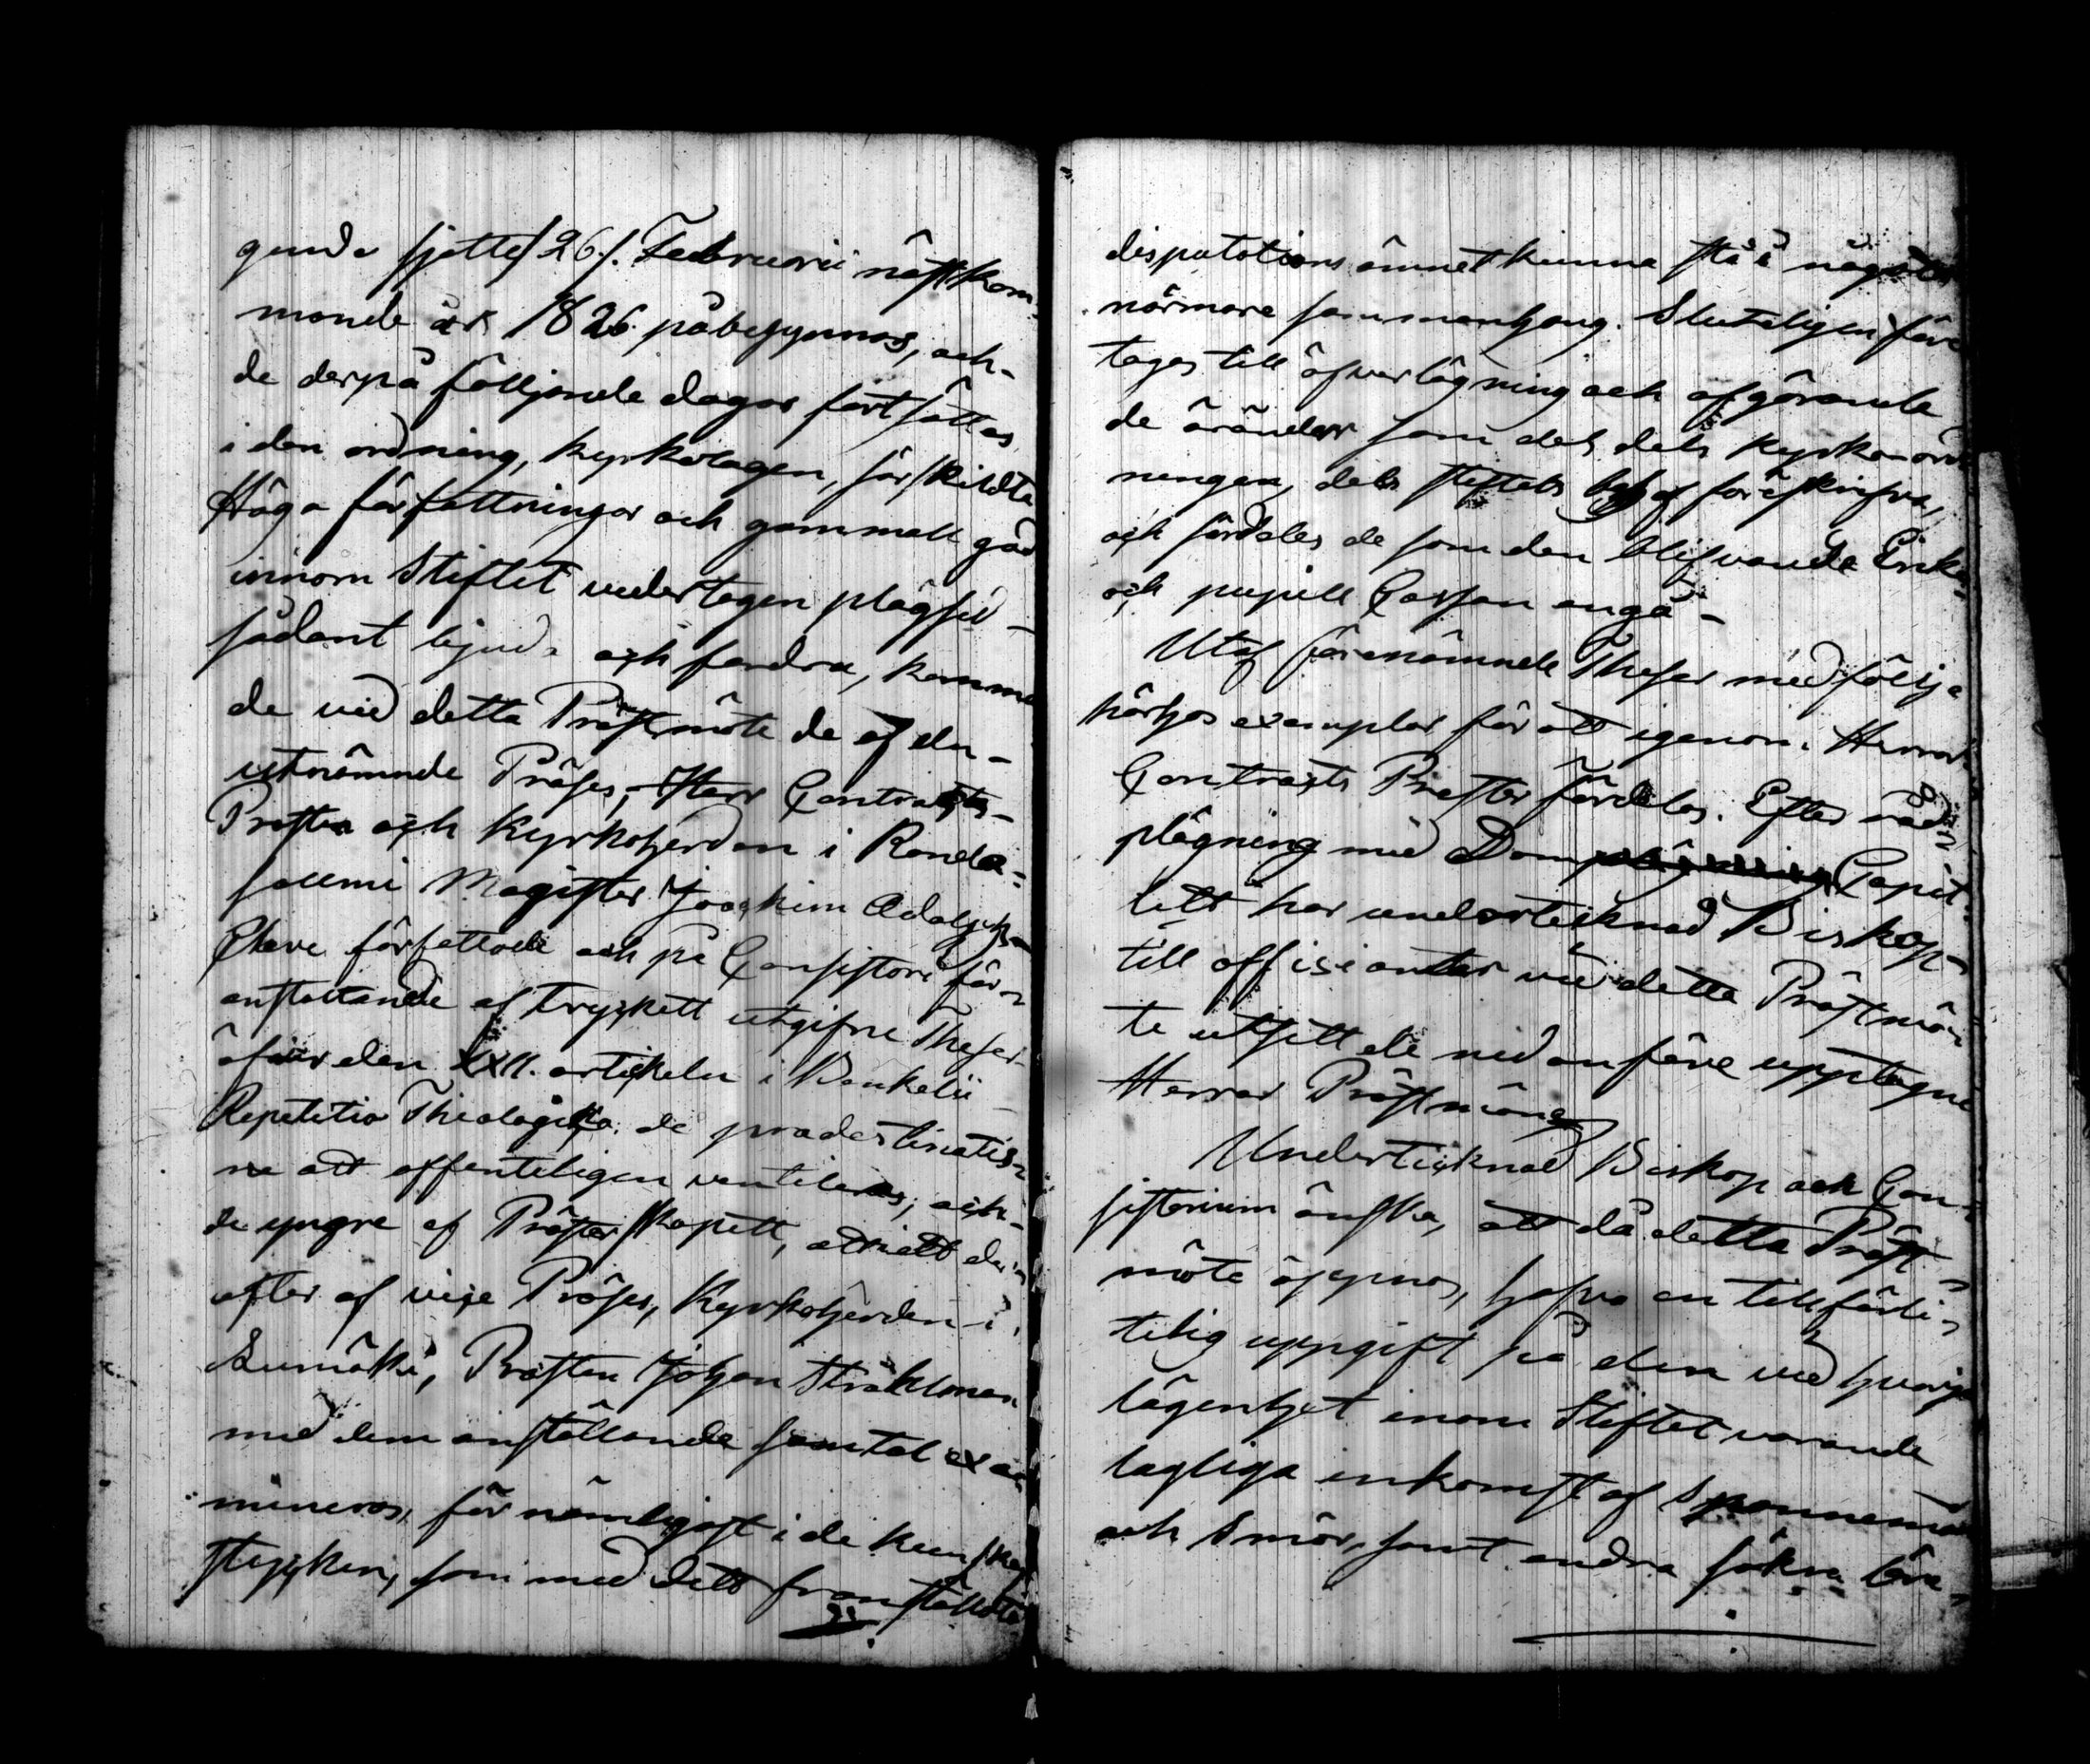 gunde sjette /26/. Februarii nästkom-
mande år 1826. påbegynnas, och-
de derpå följande dagar fortsättas
i den ordning, Kyrkolagen, särskildta
Höga författningar och gammall god
innom Stiftet vedertagen plägsed-
sådant bjuda och fordra, komma
de vid detta Prästmöte de af den-
utnämnde Präses, Herr Contracts-
Prosten och Kyrkoherden i Randa-
salmi Magister Joachim Adolph
Cleve författade och på Consistorii för-
anstaltande af trycket utgifne Theser
öfver den XXII. artikeln i Benzelii
Repetitio Theologica de prædestinatio-
ne att offentligen ventileras, och-
de yngre af Presterskapett, att der-
efter af vice Præses, Kyrkoherden i
Lumäki, Prosten Johan Stråhlman
med dem anställande samtal exa-
mineras, förnämligast i de kunskaps
stycken, som med dett framstäldta
disputations ämnet kunna stå i någott
närmare sammanhang. Sluteligen före
tages till öfverläggning och afgörande
de ärender som det, dels Kyrkoord-
ningen, dels Stiftets behof föreskrifva,
och fördeles de som den blifvande Enke
och pupill Cassan angå-
Utaf förenämnde Theser medfölja
härhos exemplar för att igenom Herrar
Contracts Proster fördelas. Efter råd-
plägning med Dom Capit-
lett har undertecknad Biskop
till officianter vid detta Prästmö-
te utsett de nedanföre upptagne
Herrar Prästmän
Undertecknad Biskop och Con-
sistorium önska, att då detta Präst
möte öppnas, hafva en tillförli-
telig uppgift på den vid hvarje
lägenhet inom Stiftet varande
lagliga inkomst af Spannemål
och Smör, samt andra säkra löne-